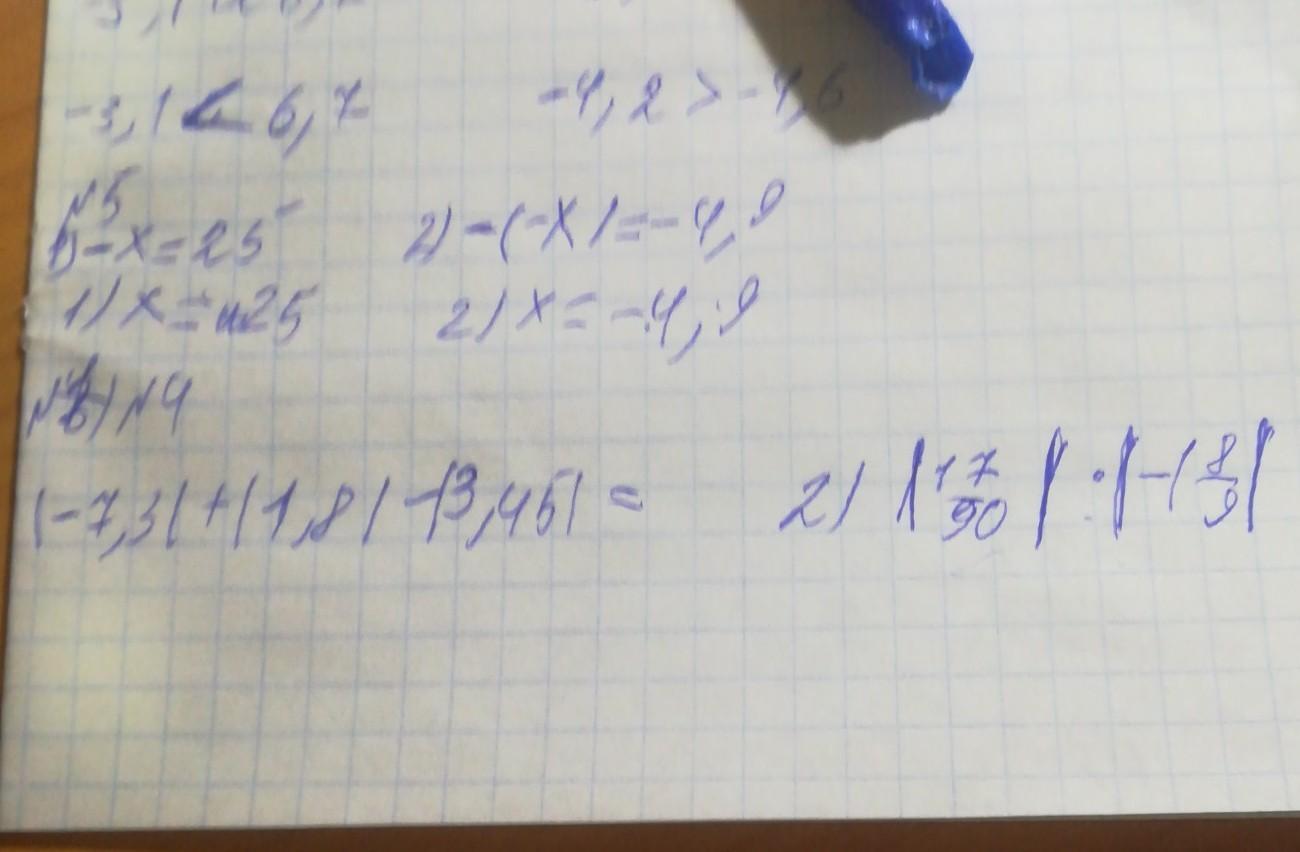 -3,1 < 6,7 -4,2 > -4,6
№5
1) -x = 25 2) -(-x) = -4,9
1) x = -25 2) x = -4,9
№4
|-7,3| + |1,8| - |3,45| = 2) |17/90| : |-1 8/9|